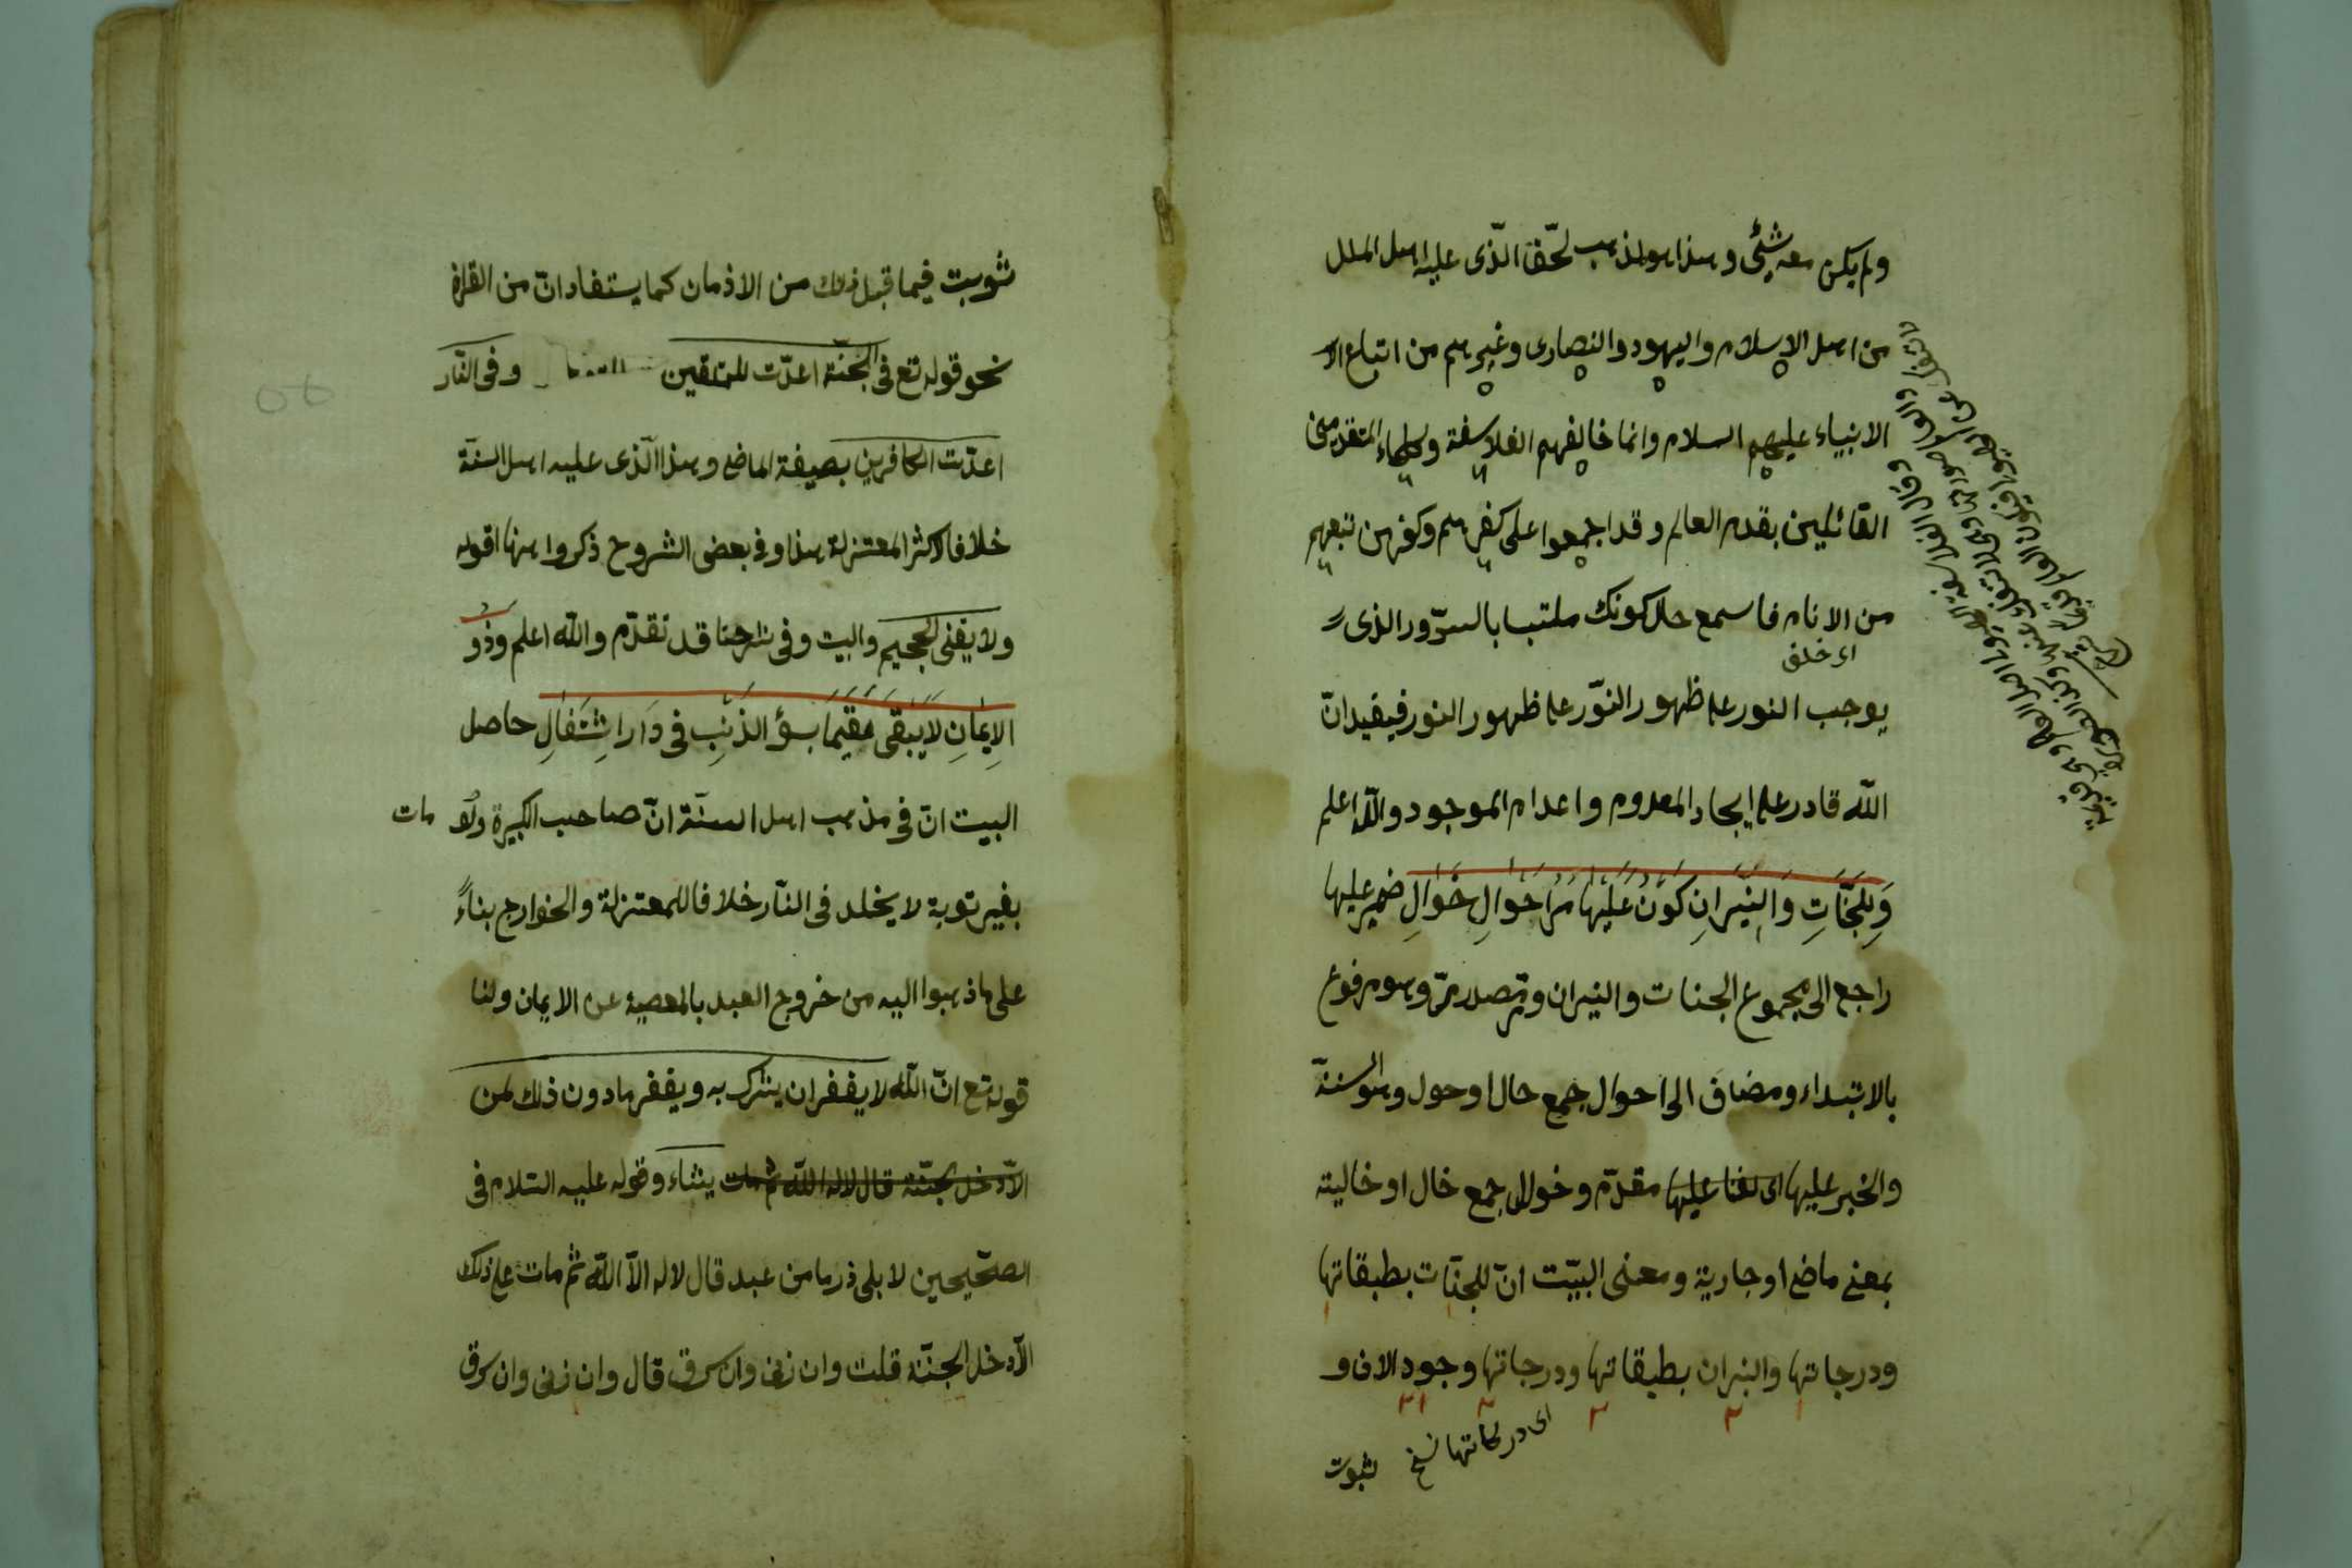 ولم يكن معه شيئ وهذا هو المذهب الحق الذى عليه اهل الملل
من اهل الاسلام واليهود والنصارى وغيرهم من اتباع الا
الانبياء عليهم السلام وانما خالفهم الفلاسفة والحكماء المتقدمين
القائلين بقدم العالم وقد اجمعوا على كفرهم وكفر من تبعهم
من الانام فاسمع حال كونك ملتبسا بالسرور الذى
اى خلق
يوجب النور على ظهور النور على ظهور النور فيفيد ان
الله قادر على ايجاد المعدوم واعدام الموجود والله اعلم
وَلِلجَنَّاتِ وَالنِّيرَانِ كَوْنٌ عَلَيْهَا مَرُّ اَحْوَالٍ خَوَالِ ضمير عليها
راجع الى مجموع الجنات والنيران ومر مصدر مرّ وهو مرفوع
بالابتداء ومضاف الى احوال جمع حال او حول وهو السنة
والخبر عليها اى عليها مقدّم وخوال جمع خال او خالية
بمعنى ماض او جارية ومعنى البيت ان للجنّات بطبقاتها
ودرجاتها والنيران بطبقاتها ودرجاتها وجود الان و
اى دركاتها نسخ
ثبوت
ثوبت فيما قبل ذلك من الازمان كما يستفاد انّ من القران
نحو قوله تع فى الجنّة اعدّت للمتقين وفى النّار
اعدّت للكافرين بصيغة الماضى وهذا الّذى عليه اهل السنّة
خلافا لاكثر المعتزلة هذا وفى بعض الشروح ذكروا هنا قوله
ولا يفنى الجحيم والبيت وفى شرحنا قد تقدّم والله اعلم وَذُو
الاِيمَانِ لَا يَبْقَى مُقِيمًا بِسُوءِ الذَّنْبِ فِى دَارِ اشْتِعَالِ حاصل
البيت ان فى مذهب اهل السنّة انّ صاحب الكبيرة ولو مات
بغير توبة لا يخلد فى النّار خلافا للمعتزلة والخوارج بناءً
على ما ذهبوا اليه من خروج العبد بالمعصية عن الايمان ولنا
قوله تع انّ الله لا يغفر ان يشرك به ويغفر ما دون ذلك لمن
الّا دخل الجنّة قال لا اله الا الله ثم مات يشاء وقوله عليه السّلام فى
الصحيحين لابى ذر ما من عبد قال لا اله الّا الله ثم مات على ذلك
الّا دخل الجنّة قلت وان زنى وان سرق قال وان زنى وان سرق